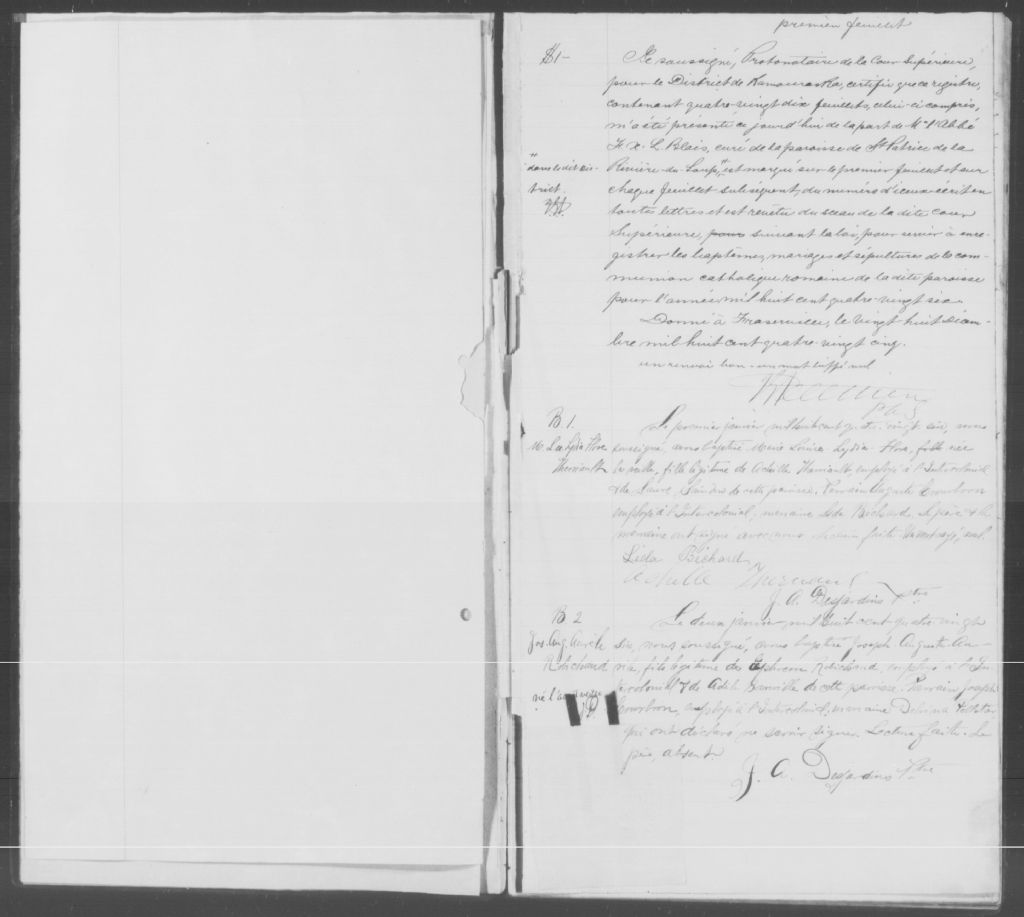 premier feuillet
$1-
Je soussigné, Protonotaire de la Cour Supérieure,
pour le District de Kamouraska, certifie que ce registre,
contenant quatre-vingt dix feuillets, celui-ci compris,
m'a été présenté ce jourd'hui de la part de Mr l'Abbé
F. X. L. Blais, curé de la paroisse de St Patrice de la
"dans le dit dis-
trict.
Rivière-du-Loup,"est marqué sur le premier feuillet et sur
chaque feuillet subséquent, du numéro d'iceux écrit en
toutes lettres et est revêtu du sceau de la dite cour
Supérieure, pour suivant la loi, pour servir à enre-
gistrer les baptêmes, mariages et sépultures de la com-
munion catholique romaine de la dite paroisse
pour l'année mil huit cent quatre-vingt six.
Donné à Fraserville, le vingt huit Décem-
bre mil huit cent quatre-vingt cinq.
un renvoi bon - un mot biffé nul
P.C.S.
B. 1.
M. Lse Lydia Flore
Therriault
Le premier janvier mil huit cent quatre vingt six, nous
soussigné, avons baptisé Marie Louise Lydia Flora, fille née
la veille, fille légitime de Achille Therriault, employé à l'Intercolonial
& de Laure de cette paroisse. Parrain Auguste Bourbon
employé à l'Intercolonial, marraine Léda Bichard. Le père & la
marraine ont signé avec nous. Lecture faite.
Lieda Bichard
Achille Therriault
J. A. Desjardins Ptre
B. 2
Jos. Aug. Aurèle
Robichaud
né l'
Le deux janvier mil huit cent quatre vingt
six, nous soussigné, avons baptisé Joseph Auguste Au-
rèle, fils légitime de Ephrem Robichaud, employé à l'In-
tercolonial & de Adèle de cette paroisse. Parrain Joseph
Bourbon, employé à l'Intercolonial, marraine Delvina
qui ont déclaré ne savoir signer. Lecture faite. Le
père, absent.
J. A. Desjardins Ptre